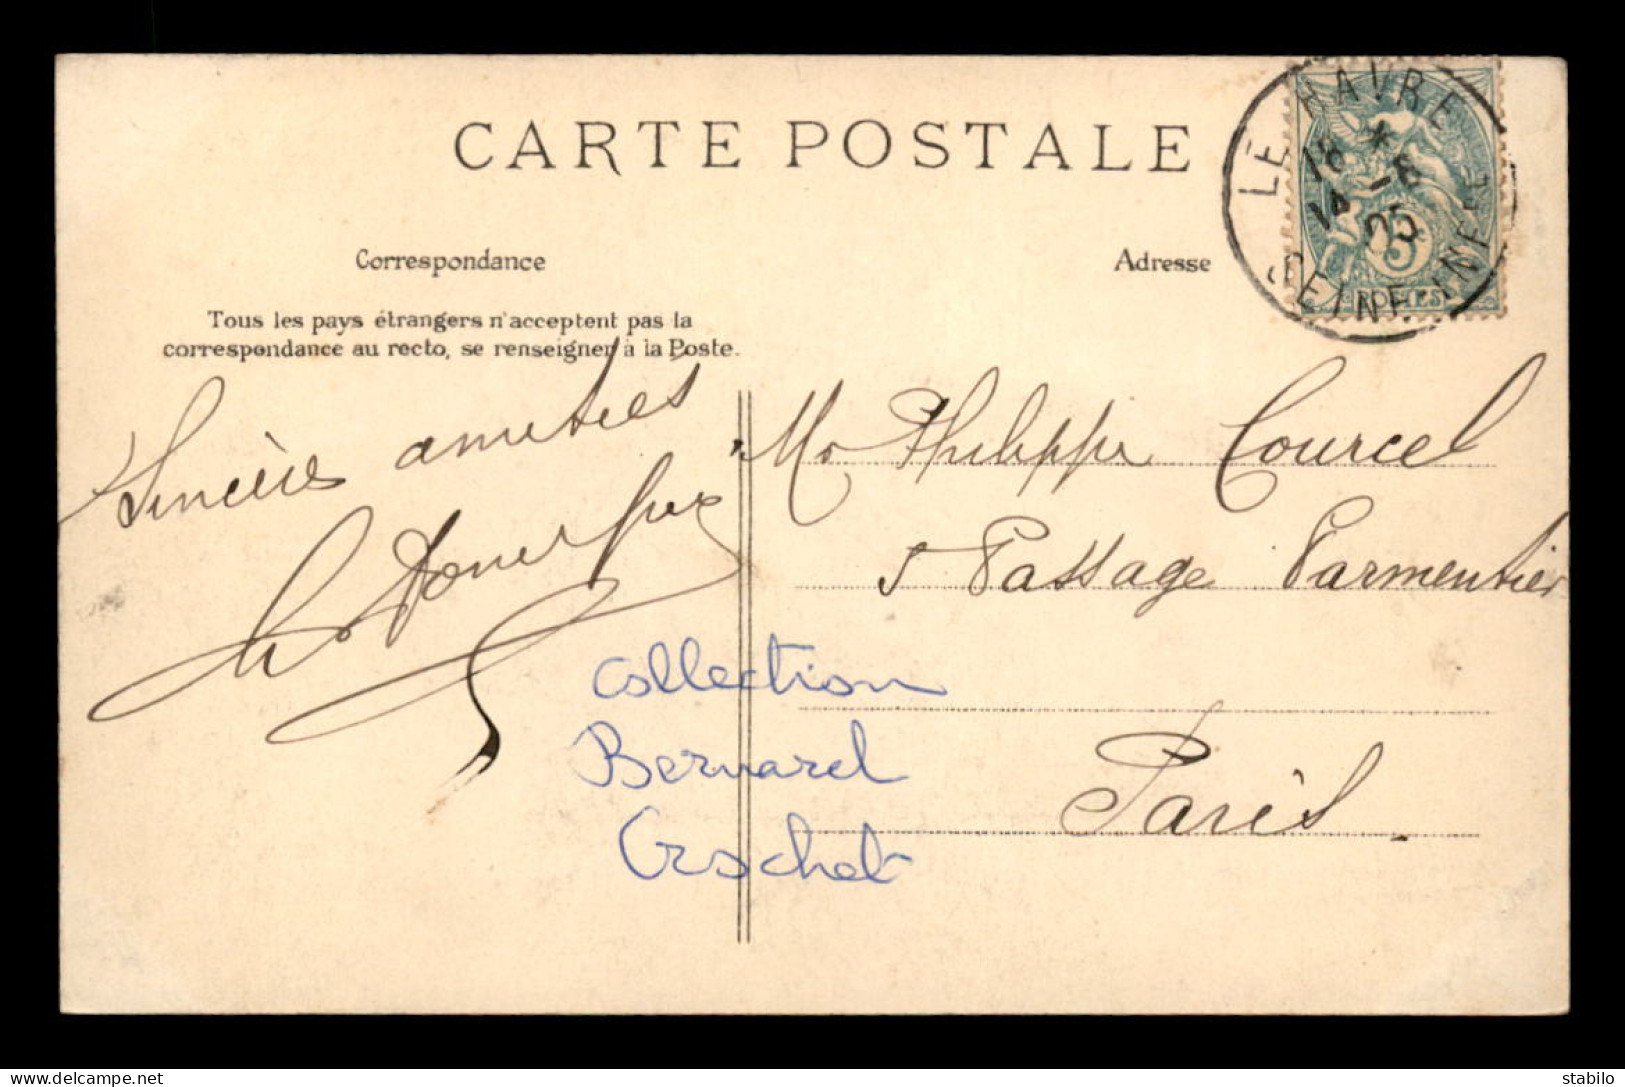 CARTE POSTALE
Correspondance
Adresse
Tous les pays étrangers n'acceptent pas la
correspondance au recto, se renseigner à la Poste.
LE HAVRE
18 *
14 -8
05
SEINE-INFRE
5
POSTES
Sincères amitiés
Mr Philippe Courcel
5 Passage Parmentier
Paris
collection
Bernard
Crochet
stabilo